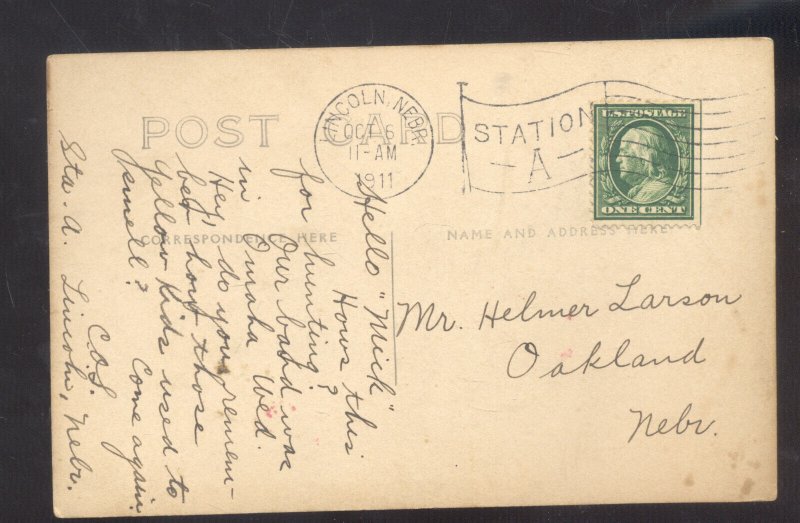 POST CARD
LINCOLN, NEBR.
OCT 6
11-AM
1911
STATION
-A-
U.S. POSTAGE
ONE CENT
CORRESPONDENCE HERE
NAME AND ADDRESS HERE
Hello "Mick"
Hows this
for hunting?
Our band was
in Omaha Wed.
Hey! do you remem-
ber how those
Yellow Kids used to
smell? Come again.
C.O.S.
Sta. A. Lincoln, Nebr.
Mr. Helmer Larson
Oakland
Nebr.